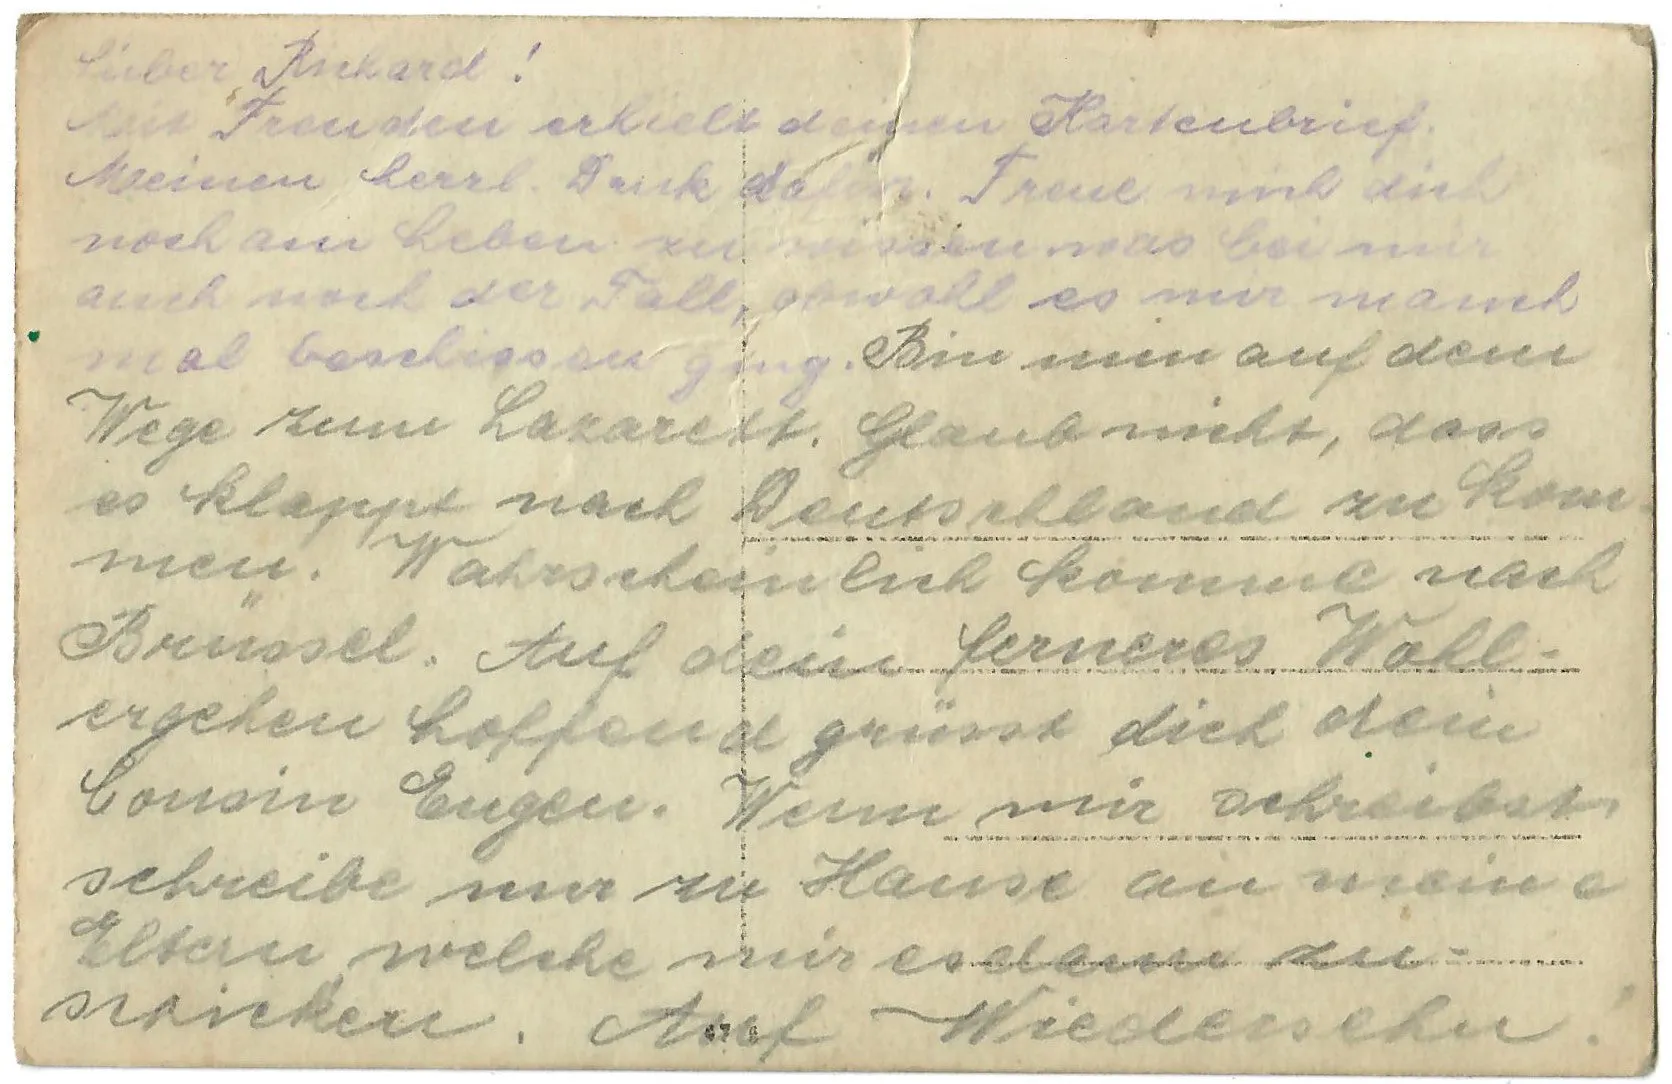 Lieber Rickard!
Mit Freuden erhielt deinen Kartenbrief.
Meinen herzl. Dank dafür. Freue mich dich
noch am Leben zu wissen was bei mir
auch noch der Fall, obwohl es mir manch
mal beschissen ging. Bin nun auf dem
Wege zum Lazarett. Glaub nicht, dass
es klappt nach Deutschland zu kom-
men. Wahrscheinlich komme nach
Brüssel. Auf dein ferneres Wohl-
ergehen hoffend grüsst dich dein
Cousin Eugen. Wenn mir schreibst,
schreibe nur zu Hause an meine
Eltern, welche mir es dann zu-
schicken. Auf Wiedersehn!